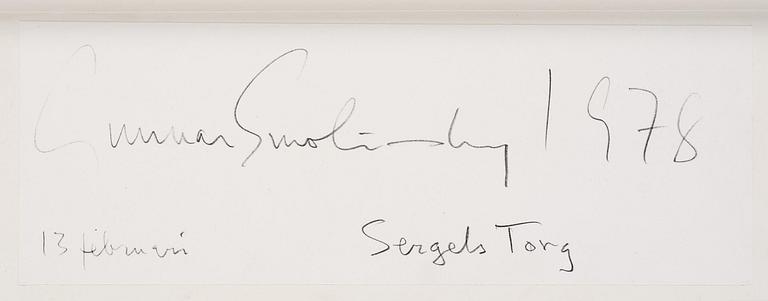 Gunnar Smoliansky 1978
13 februari Sergels Torg